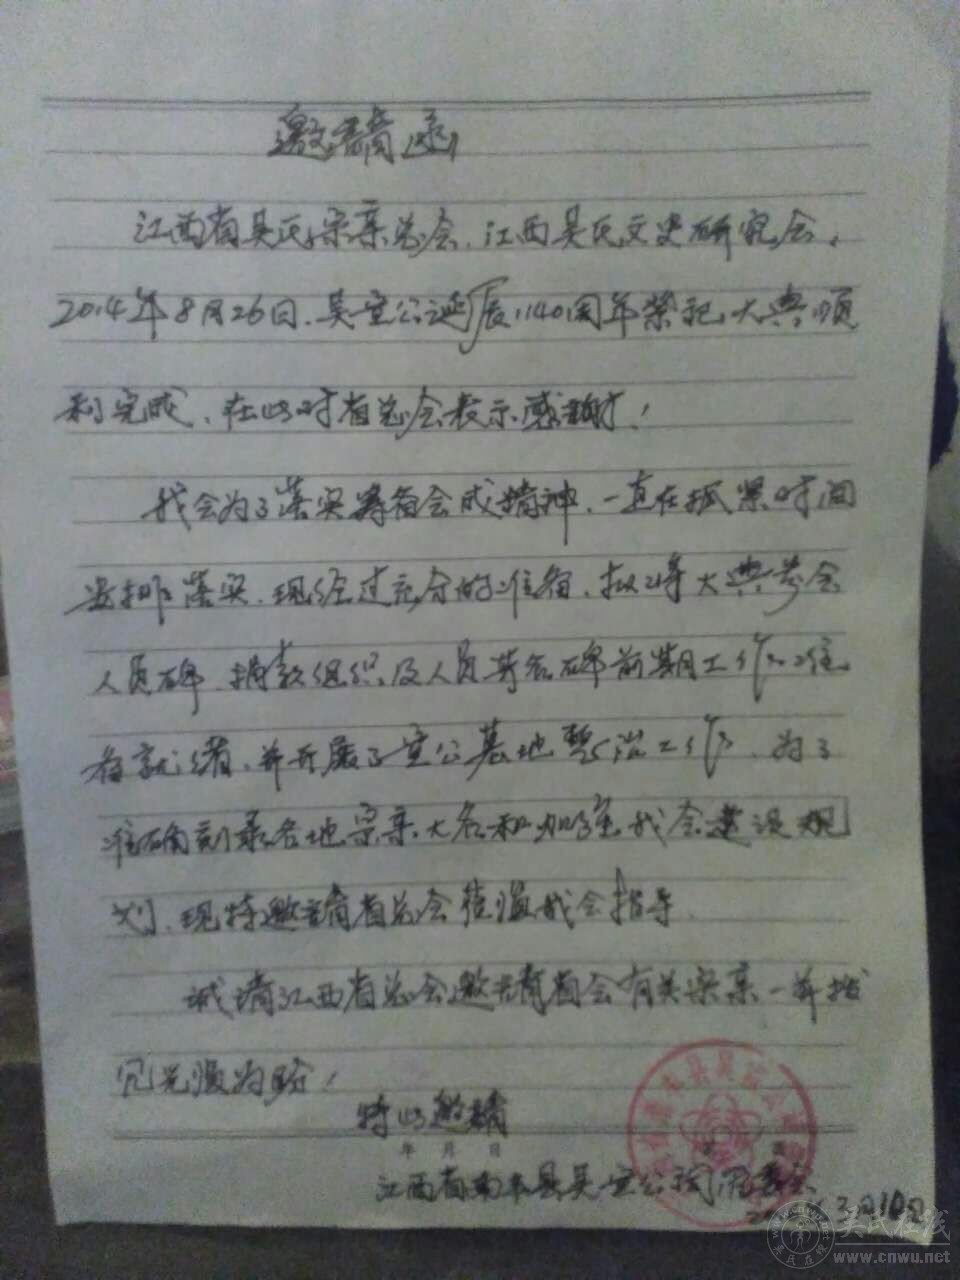 邀请函
江西省吴氏宗亲总会、江西吴氏文史研究会、
2014年8月26日、吴宣公诞辰1140周年祭祀大典顺
利完成、在此对省总会表示感谢！
我会为了落实筹备会成精神、一直在抓紧时间
安排落实、现经过充分的准备、拟将大典参会
人员碑、捐款组织及人员芳名碑前期工作准
备就绪、并开展了宣公墓地整治工作、为了
准确刻录各地宗亲大名和加强我会建设规
划、现特邀请省总会莅临我会指导
诚请江西省总会邀请省会有关宗亲一并拨
冗光临为盼！
特此邀请
年 月 日
江西省南丰县吴宣公
3月10日
吴氏在线
www.cnwu.net